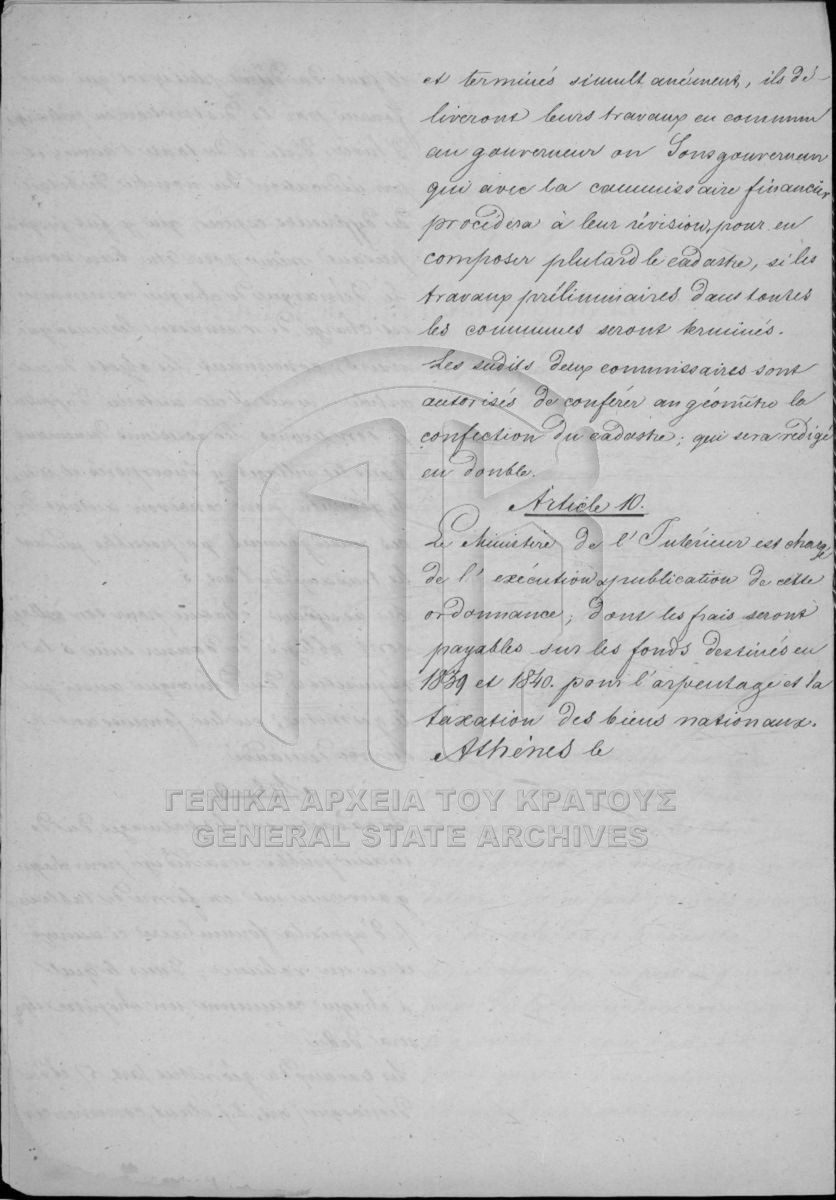 et terminés simultanément, ils dé-
livreront leurs travaux en commun
au gouverneur ou Sousgouverneur
qui avec la commissaire financier
procédera à leur révision, pour en
composer plutard le cadastre, si les
travaux préliminaires dans toutes
les communes seront terminés.
Les sudits deux commissaires sont
autorisés de conférer au géomètre la
confection du cadastre; qui sera rédigé
en double.
Article 10.
Le Ministère de l'Intérieur est chargé
de l'exécution & publication de cette
ordonnance; dont les frais seront
payables sur les fonds destinés en
1839 et 1840. pour l'arpentage et la
taxation des biens nationaux.
Athènes le
ΓΕΝΙΚΑ ΑΡΧΕΙΑ ΤΟΥ ΚΡΑΤΟΥΣ
GENERAL STATE ARCHIVES